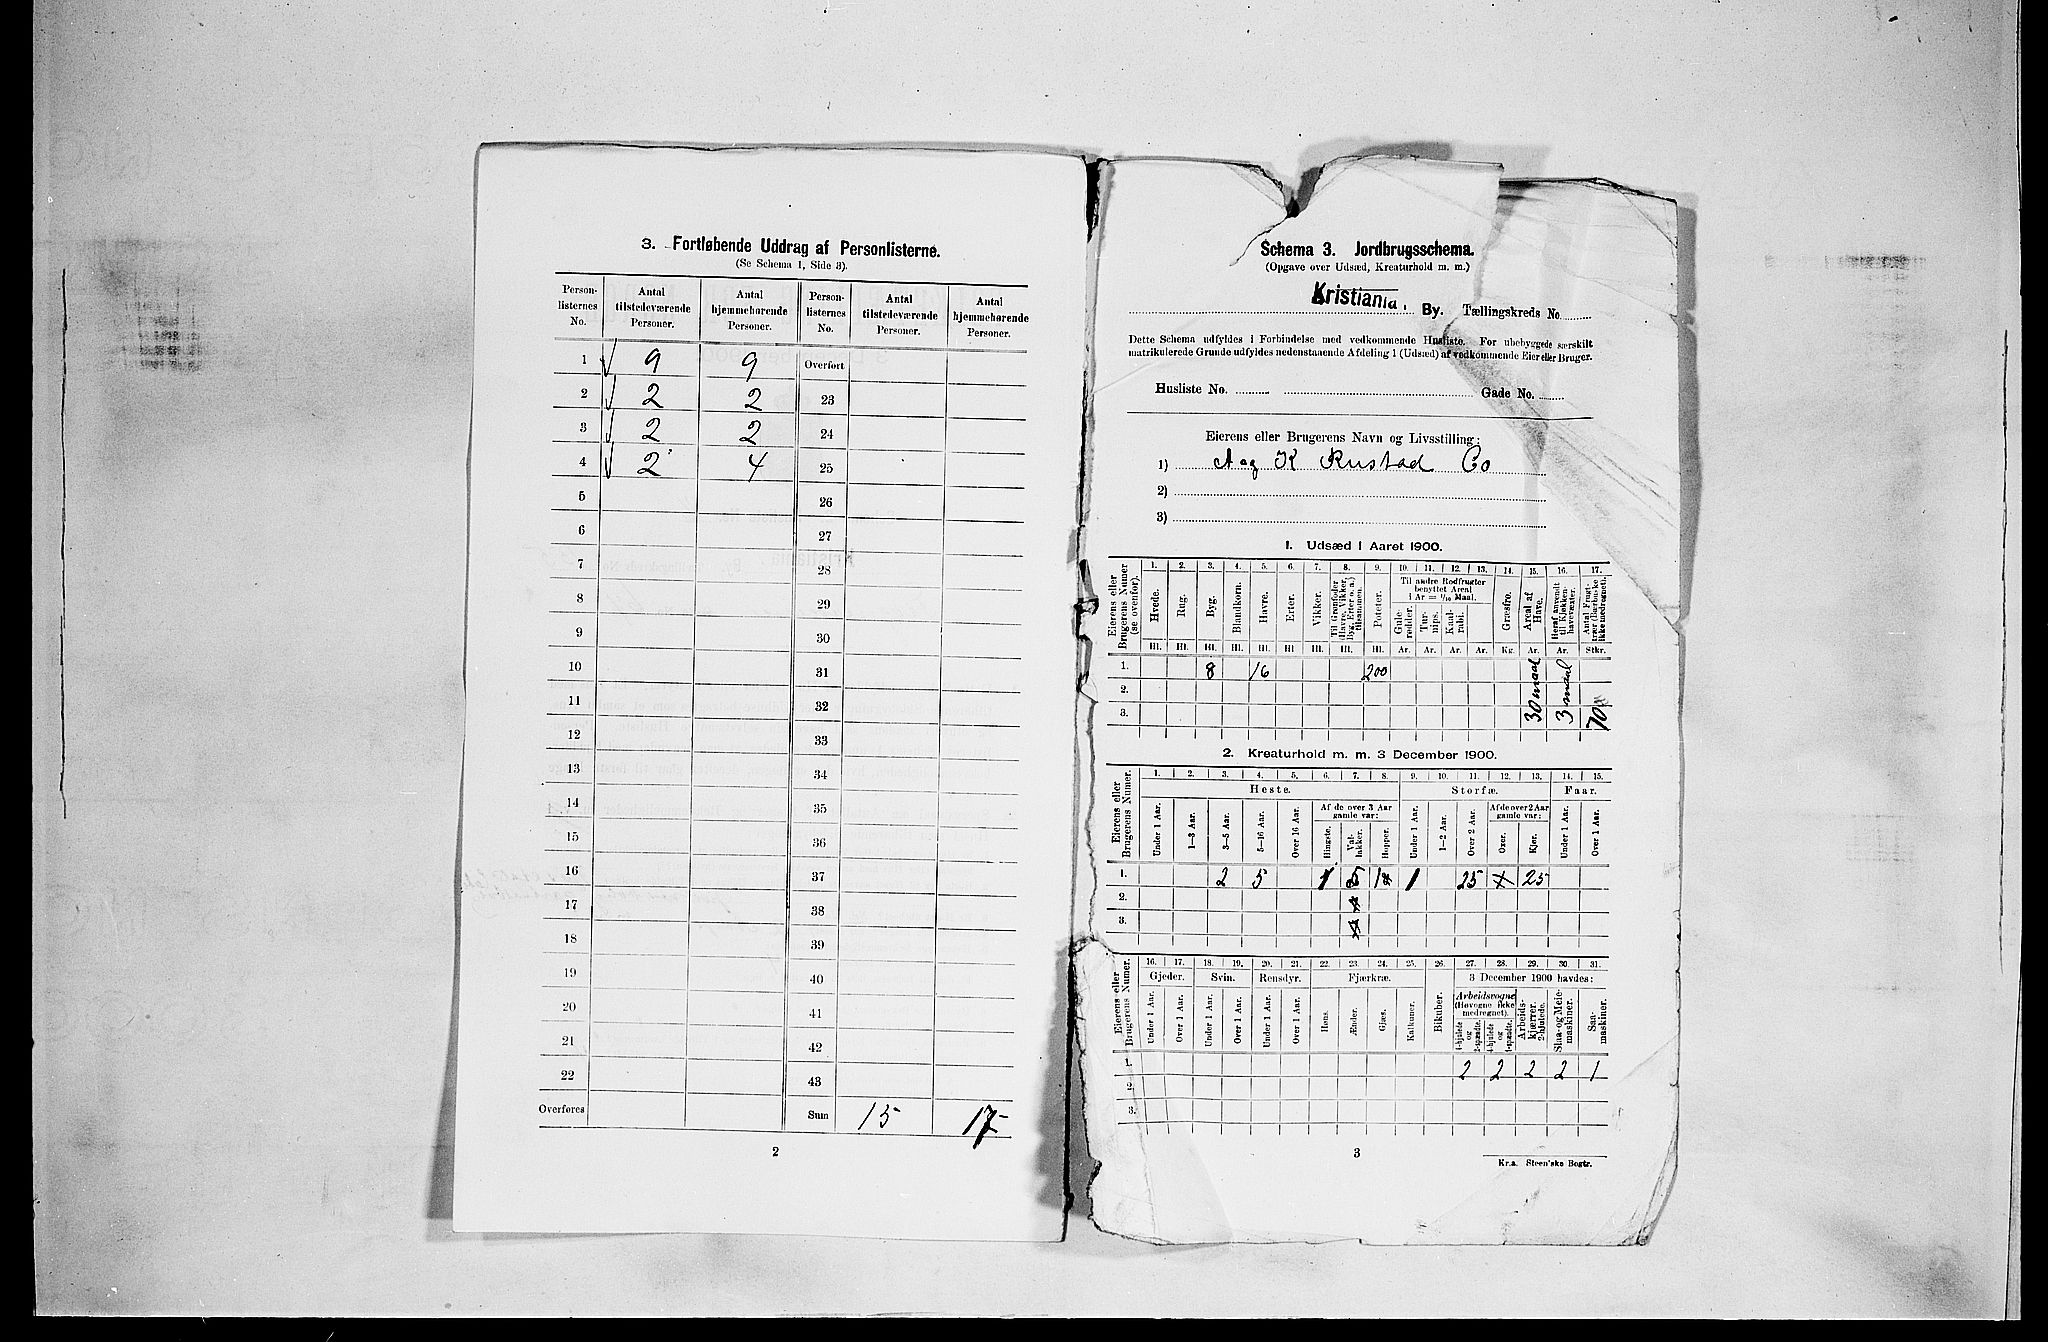 3. Fortløbende Uddrag af Personlisterne.
(Se Schema 1, Side 3).
Person-listernes No. Antal tilstedeværende Personer. Antal hjemmehørende Personer. Person-listernes No. Antal tilstedeværende Personer. Antal hjemmehørende Personer.
1 9 9 Overført
2 2 2 23
3 2 2 24
4 2 4 25
5 26
6 27
7 28
8 29
9 30
10 31
11 32
12 33
13 34
14 35
15 36
16 37
17 38
18 39
19 40
20 41
21 42
22 43
Overføres Sum 15 17
2
Schema 3. Jordbrugsschema.
(Opgave over Udsæd, Kreaturhold m. m.)
Kristiania, By. Tællingskreds No.
Dette Schema udfyldes i Forbindelse med vedkommende Husliste. For ubebyggede særskilt
matrikulerede Grunde udfyldes nedenstaaende Afdeling 1 (Udsæd) af vedkommende Eier eller Bruger.
Husliste No. Gade No.
Eierens eller Brugerens Navn og Livsstilling:
1) Aag K Rustad Co
2)
3)
1. Udsæd i Aaret 1900.
1. 2. 3. 4. 5. 6. 7. 8. 9. 10. 11. 12. 13. 14. 15. 16. 17.
Eierens eller Brugerens Numer (se ovenfor). Hvede. Rug. Byg. Blandkorn. Havre. Erter. Vikker. Til Grønfoder (Havre, Vikker, Byg, Erter o. a.) tilsammen. Poteter. Til andre Rodfrugter benyttet Areal i Ar = 1/10 Maal. Gulerødder. Turnips. Kaalrabi. Græsfrø. Areal af Have. Heraf anvendt til Kjøkkenhavevæxter. Antal Frugttrær (Bærbuske ikke medregnet).
Hl. Hl. Hl. Hl. Hl. Hl. Hl. Hl. Hl. Ar. Ar. Ar. Ar. Kg. Ar. Ar. Stkr.
1. 8 16 200 30 maal 3 maal 70
2.
3.
2. Kreaturhold m. m. 3 December 1900.
1. 2. 3. 4. 5. 6. 7. 8. 9. 10. 11. 12. 13. 14. 15.
Eierens eller Brugerens Numer. Heste. Storfæ. Faar.
Af de over 3 Aar gamle var: Af de over 2 Aar gamle var:
Under 1 Aar. 1—3 Aar. 3—5 Aar. 5—16 Aar. Over 16 Aar. Hingste. Vallakker. Hopper. Under 1 Aar. 1—2 Aar. Over 2 Aar. Oxer. Kjør. Under 1 Aar. Over 1 Aar.
1. 2 5 1 5 1 1 25 25
2.
3.
16. 17. 18. 19. 20. 21. 22. 23. 24. 25. 26. 27. 28. 29. 30. 31.
Eierens eller Brugerens Numer. Gjeder. Svin. Rensdyr. Fjærkræ. Bikuber. 3 December 1900 havdes:
Arbeidsvogne (Høvogne ikke medregnet). Arbeidskjærrer 2-hjulede. Slaa- og Meiemaskiner. Saamaskiner.
Under 1 Aar. Over 1 Aar. Under 1 Aar. Over 1 Aar. Under 1 Aar. Over 1 Aar. Høns. Ænder. Gjæs. Kalkuner. 4-hjulede og 2-spændte. 4-hjulede og 1-spændte.
1. 2 2 2 2 1
2
3.
3
Kr.a. Steen'ske Bogtr.